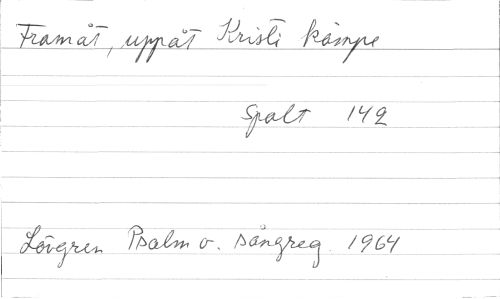 Framåt, uppåt Kristi kämpe
Spalt 142
Lövgren Psalm o. sångreg. 1964